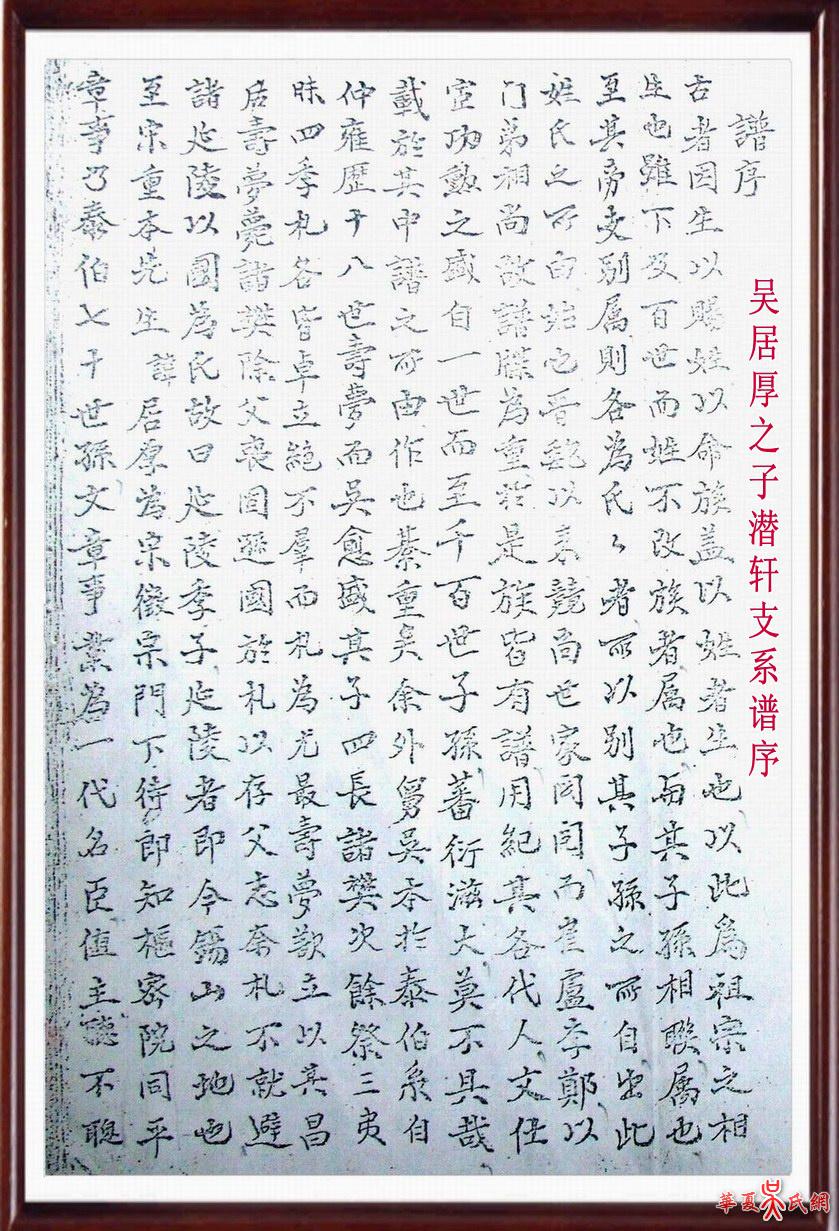 譜序
吴居厚之子潜轩支系谱序
古者因生以賜姓以命族盖以姓者生也以此為祖宗之相
生也雖下及百世而姓不改族者属也与其子孫相聮属也
至其旁支别属則各為氏〻者所以别其子孫之所自出此
姓氏之所由始也晋魏以来競尚世家因閥而崔盧李鄭以
门弟相尚故譜牒為重於是族皆有譜用紀其各代人文仕
宦功勲之盛自一世而至千百世子孫蕃衍滋大莫不具哉
載於其中譜之所由作也綦重矣余外舅吴本於泰伯系自
仲雍歴十八世壽夢而吴愈盛其子四長諸樊次餘祭三夷
昧四季札各皆卓立絶不羣而札為尤最壽夢歿立以其昌
后壽夢薨諸樊除父丧因遜國於札以存父志奈札不就避
諸延陵以國為氏故曰延陵季子延陵者即今錫山之地也
至宗重本先生諱居厚為宋徽宗門下待郎知樞密院同平
章事乃泰伯七十世孫文章事業為一代名臣值主聽不聰
華夏吴氏網